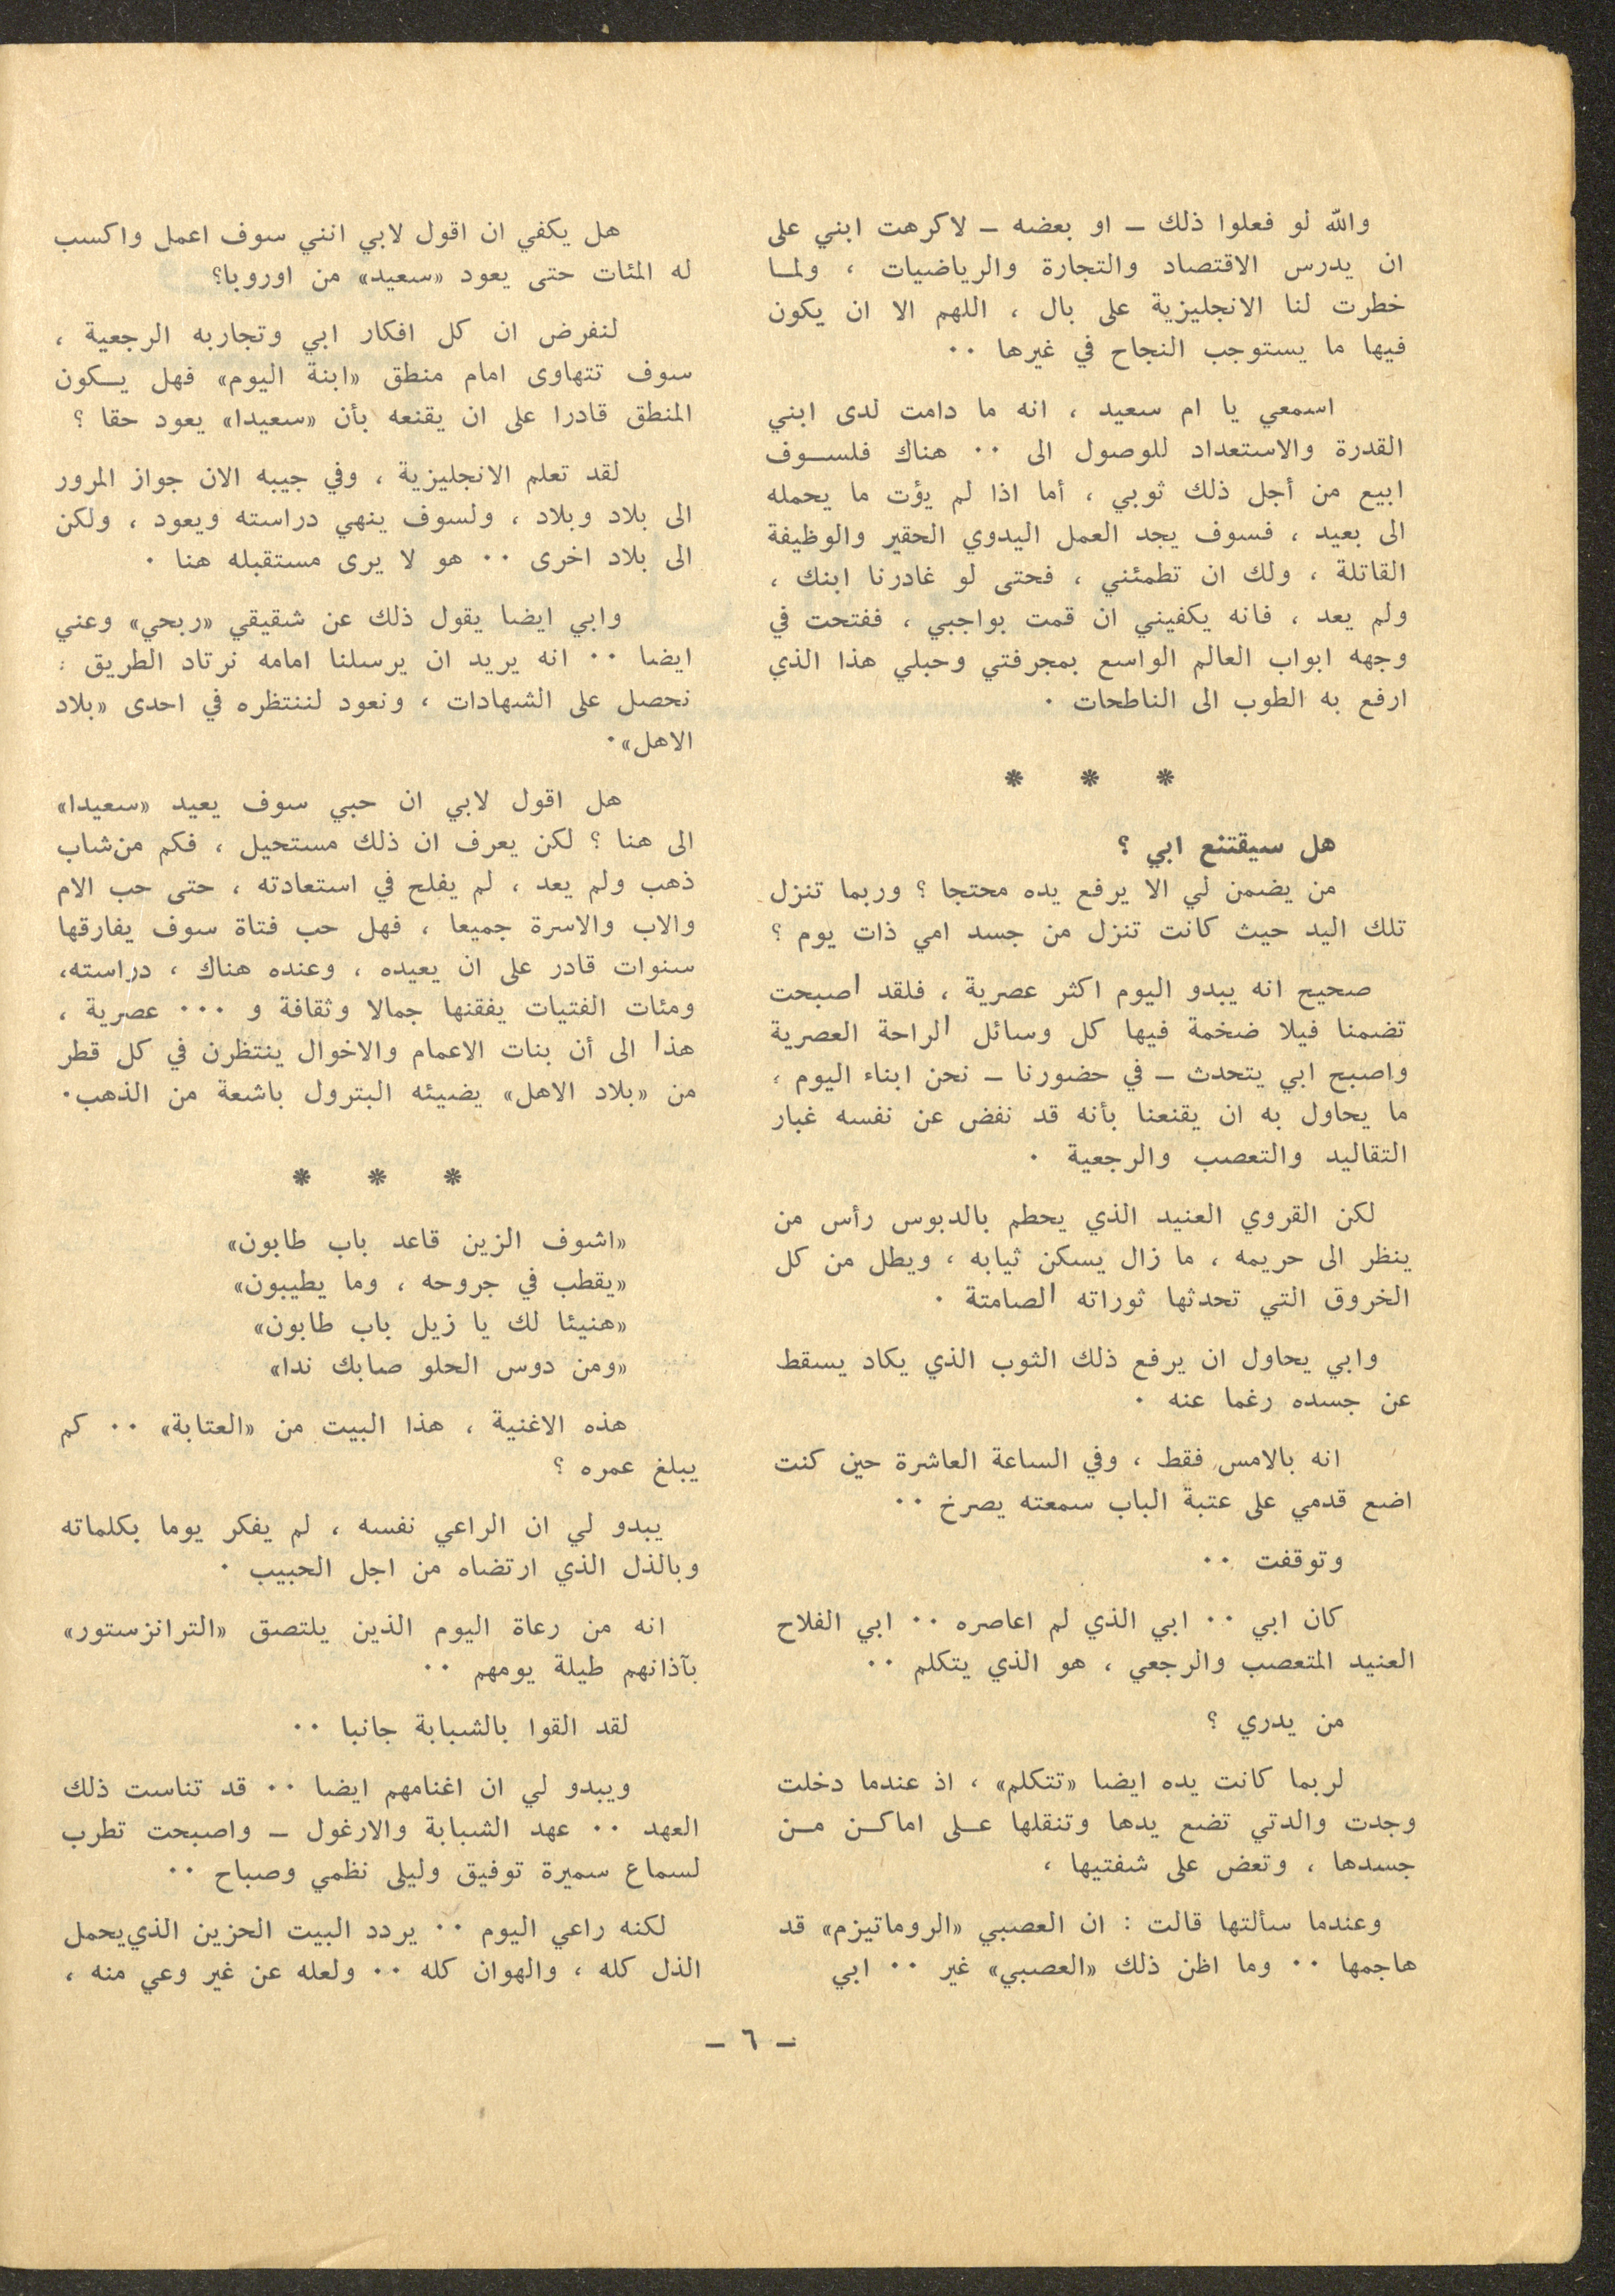 والله لو فعلوا ذلك – او بعضه – لاكرهت ابني على
ان يدرس الاقتصاد والتجارة والرياضيات ، ولمـا
خطرت لنا الانجليزية على بال ، اللهم الا ان يكون
فيها ما يستوجب النجاح في غيرها ٠٠
اسمعي يا ام سعيد ، انه ما دامت لدى ابني
القدرة والاستعداد للوصول الى ٠٠ هناك فلسـوف
ابيع من أجل ذلك ثوبي ، أما اذا لم يؤت ما يحمله
الى بعيد ، فسوف يجد العمل اليدوي الحقير والوظيفة
القاتلة ، ولك ان تطمئني ، فحتى لو غادرنا ابنك ،
ولم يعد ، فانه يكفيني ان قمت بواجبي ، ففتحت في
وجهه ابواب العالم الواسع بمجرفتي وحبلي هذا الذي
ارفع به الطوب الى الناطحات ٠
* * *
هل سيقتنع ابي ؟
من يضمن لي الا يرفع يده محتجا ؟ وربما تنزل
تلك اليد حيث كانت تنزل من جسد امي ذات يوم ؟
صحيح انه يبدو اليوم اكثر عصرية ، فلقد اصبحت
تضمنا فيلا ضخمة فيها كل وسائل الراحة العصرية
واصبح ابي يتحدث – في حضورنا – نحن ابناء اليوم ،
ما يحاول به ان يقنعنا بأنه قد نفض عن نفسه غبار
التقاليد والتعصب والرجعية ٠
لكن القروي العنيد الذي يحطم بالدبوس رأس من
ينظر الى حريمه ، ما زال يسكن ثيابه ، ويطل من كل
الخروق التي تحدثها ثوراته الصامتة ٠
وابي يحاول ان يرفع ذلك الثوب الذي يكاد يسقط
عن جسده رغما عنه ٠
انه بالامس فقط ، وفي الساعة العاشرة حين كنت
اضع قدمي على عتبة الباب سمعته يصرخ ٠٠
وتوقفت ٠٠
كان ابي ٠٠ ابي الذي لم اعاصره ٠٠ ابي الفلاح
العنيد المتعصب والرجعي ، هو الذي يتكلم ٠٠
من يدري ؟
لربما كانت يده ايضا «تتكلم» ، اذ عندما دخلت
وجدت والدتي تضع يدها وتنقلها عـلى اماكـن مـن
جسدها ، وتعض على شفتيها ،
وعندما سألتها قالت : ان العصبي «الروماتيزم» قد
هاجمها ٠٠ وما اظن ذلك «العصبي» غير ٠٠ ابي
هل يكفي ان اقول لابي انني سوف اعمل واكسب
له المئات حتى يعود «سعيد» من اوروبا؟
لنفرض ان كل افكار ابي وتجاربه الرجعية ،
سوف تتهاوى امام منطق «ابنة اليوم» فهل يـكون
المنطق قادرا على ان يقنعه بأن «سعيدا» يعود حقا ؟
لقد تعلم الانجليزية ، وفي جيبه الان جواز المرور
الى بلاد وبلاد ، ولسوف ينهي دراسته ويعود ، ولكن
الى بلاد اخرى ٠٠ هو لا يرى مستقبله هنا ٠
وابي ايضا يقول ذلك عن شقيقي «ربحي» وعني
ايضا ٠٠ انه يريد ان يرسلنا امامه نرتاد الطريق :
نحصل على الشهادات ، ونعود لننتظره في احدى «بلاد
الاهل»٠
هل اقول لابي ان حبي سوف يعيد «سعيدا»
الى هنا ؟ لكن يعرف ان ذلك مستحيل ، فكم من شاب
ذهب ولم يعد ، لم يفلح في استعادته ، حتى حب الام
والاب والاسرة جميعا ، فهل حب فتاة سوف يفارقها
سنوات قادر على ان يعيده ، وعنده هناك ، دراسته،
ومئات الفتيات يفقنها جمالا وثقافة و ٠٠٠ عصرية ،
هذا الى أن بنات الاعمام والاخوال ينتظرن في كل قطر
من «بلاد الاهل» يضيئه البترول باشعة من الذهب٠
* * *
«اشوف الزين قاعد باب طابون»
«يقطب في جروحه ، وما يطيبون»
«هنيئا لك يا زيل باب طابون»
«ومن دوس الحلو صابك ندا»
هذه الاغنية ، هذا البيت من «العتابة» ٠٠ كم
يبلغ عمره ؟
يبدو لي ان الراعي نفسه ، لم يفكر يوما بكلماته
وبالذل الذي ارتضاه من اجل الحبيب ٠
انه من رعاة اليوم الذين يلتصق «الترانزستور»
بآذانهم طيلة يومهم ٠٠
لقد القوا بالشبابة جانبا ٠٠
ويبدو لي ان اغنامهم ايضا ٠٠ قد تناست ذلك
العهد ٠٠ عهد الشبابة والارغول – واصبحت تطرب
لسماع سميرة توفيق وليلى نظمي وصباح ٠٠
لكنه راعي اليوم ٠٠ يردد البيت الحزين الذي يحمل
الذل كله ، والهوان كله ٠٠ ولعله عن غير وعي منه ،
– ٦ –